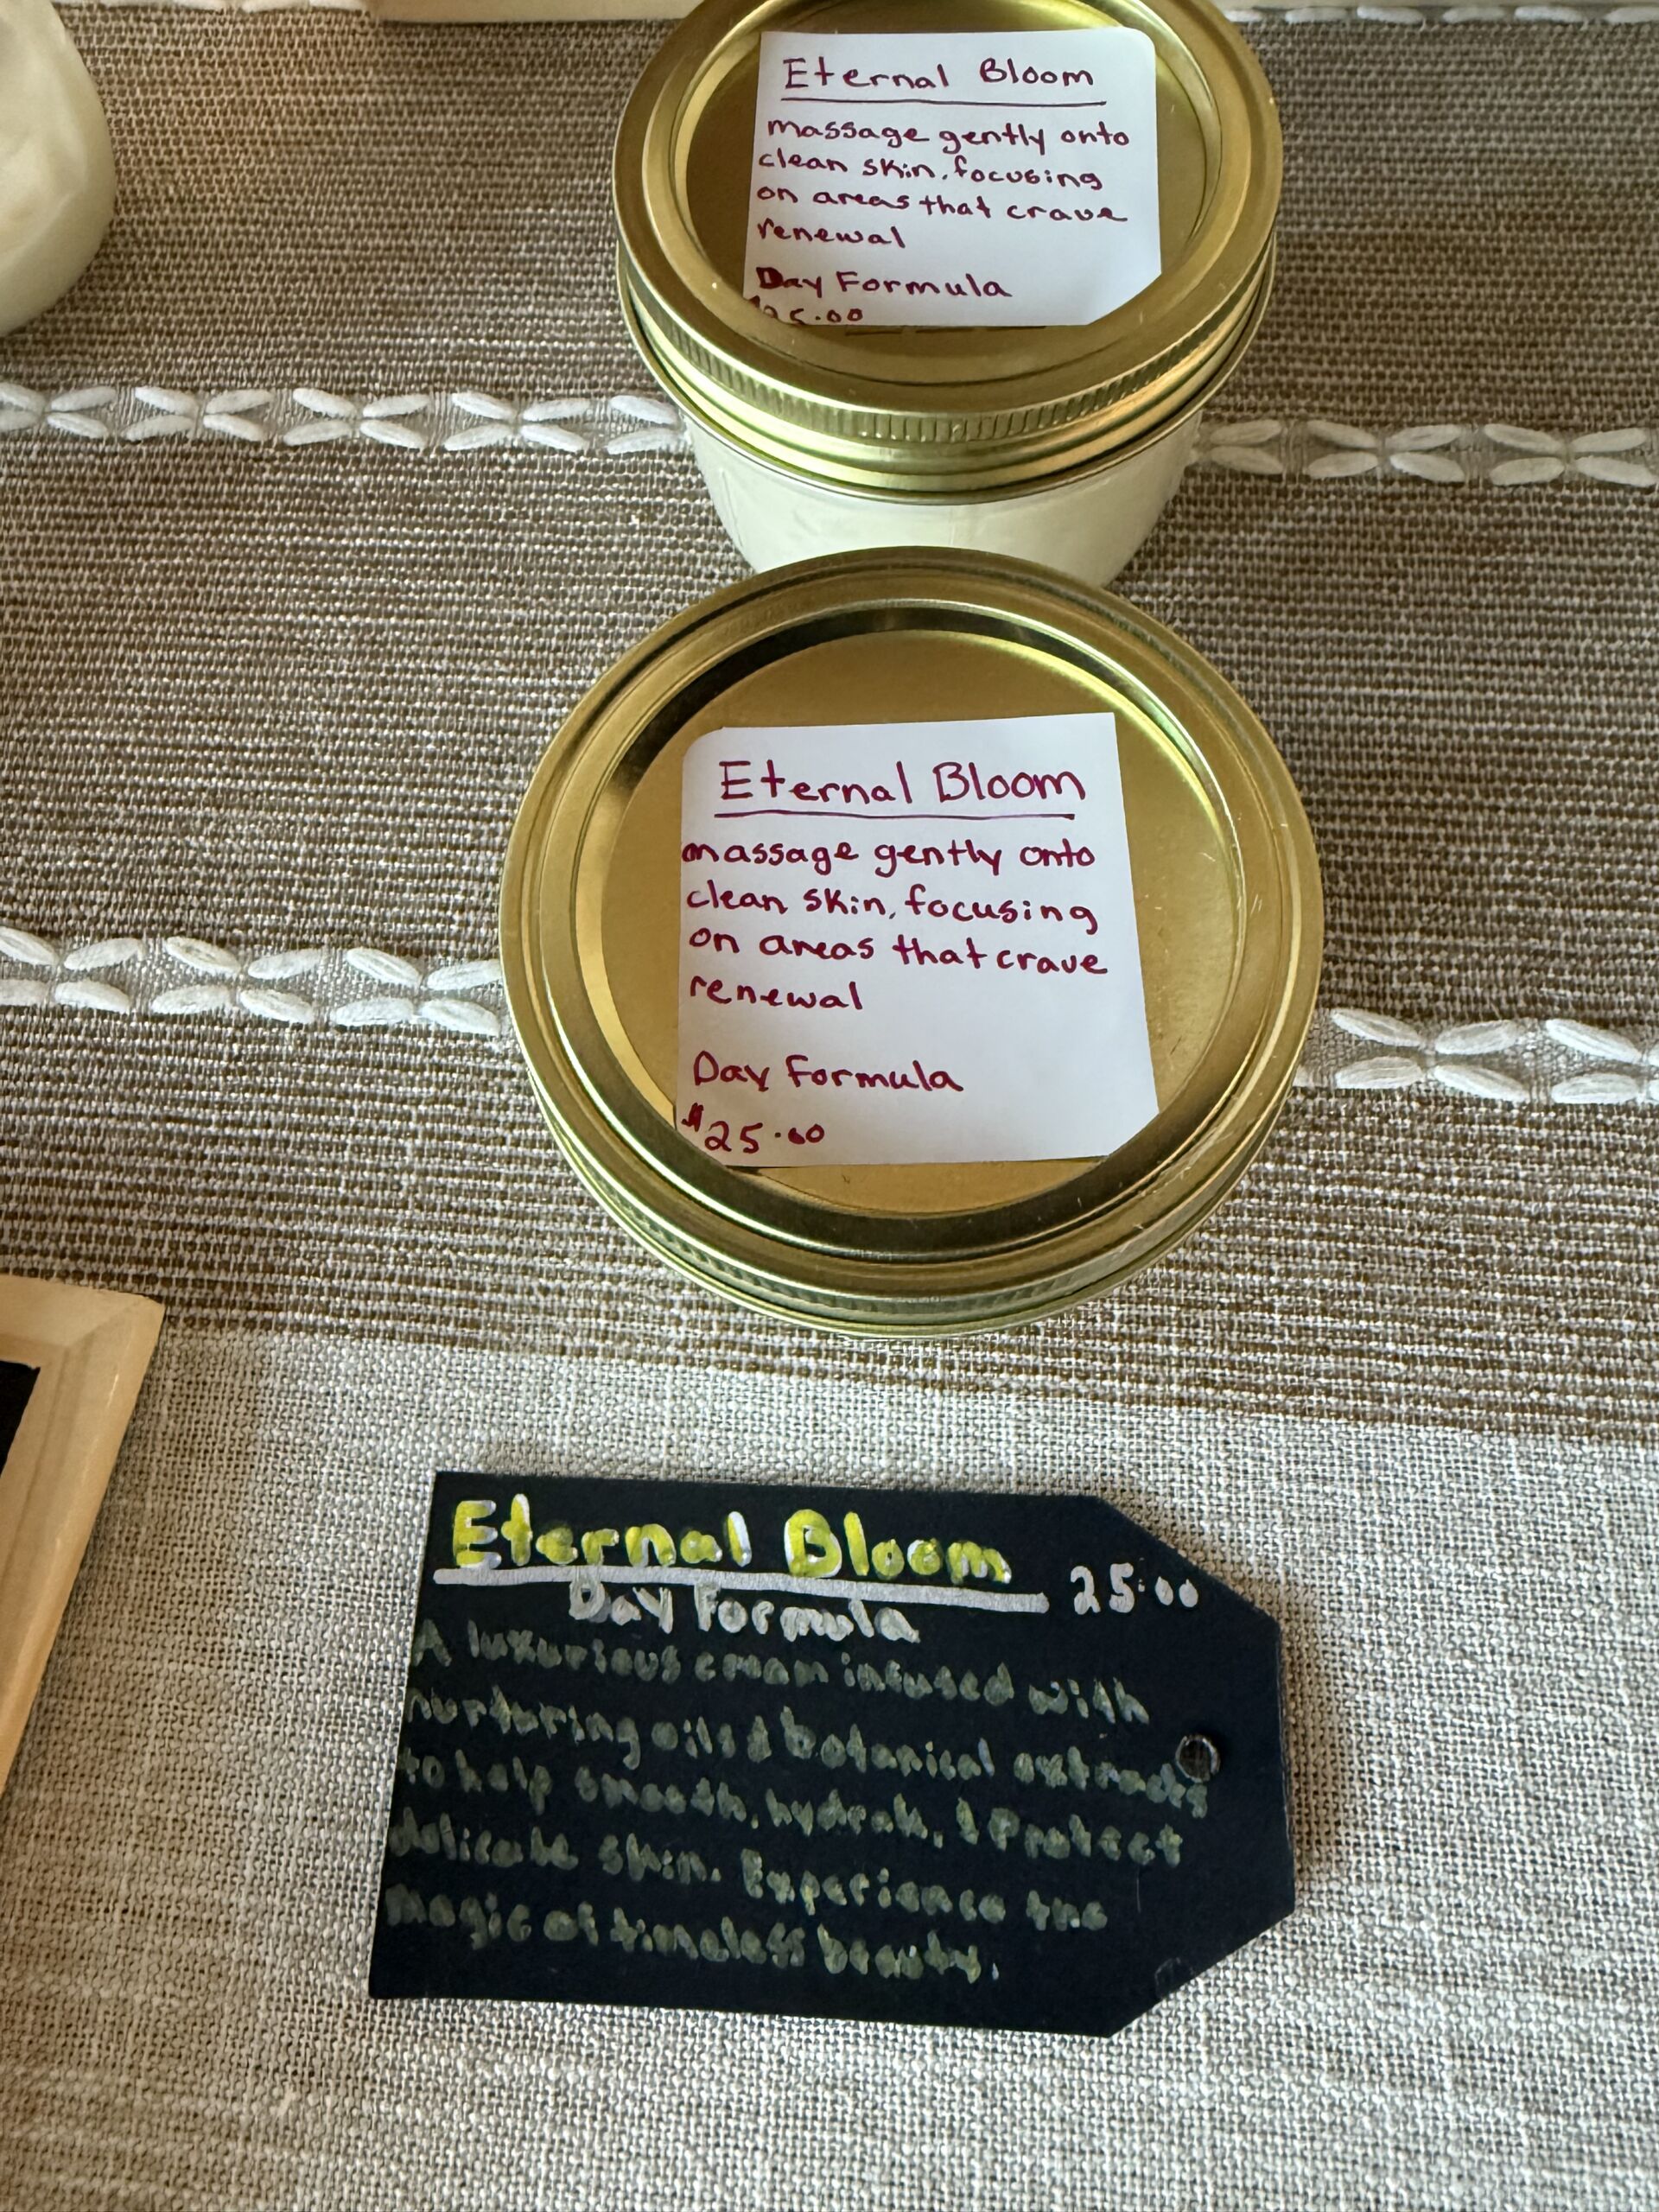 Eternal Bloom
massage gently onto
clean skin, focusing
on areas that crave
renewal
Day Formula
$25.00
Eternal Bloom
massage gently onto
clean skin, focusing
on areas that crave
renewal
Day Formula
$25.00
Eternal Bloom 25.00
Day Formula
A luxurious cream infused with
nurturing oils & botanical extracts
to help smooth, hydrate, & Protect
delicate skin. Experience the
magic of timeless beauty.